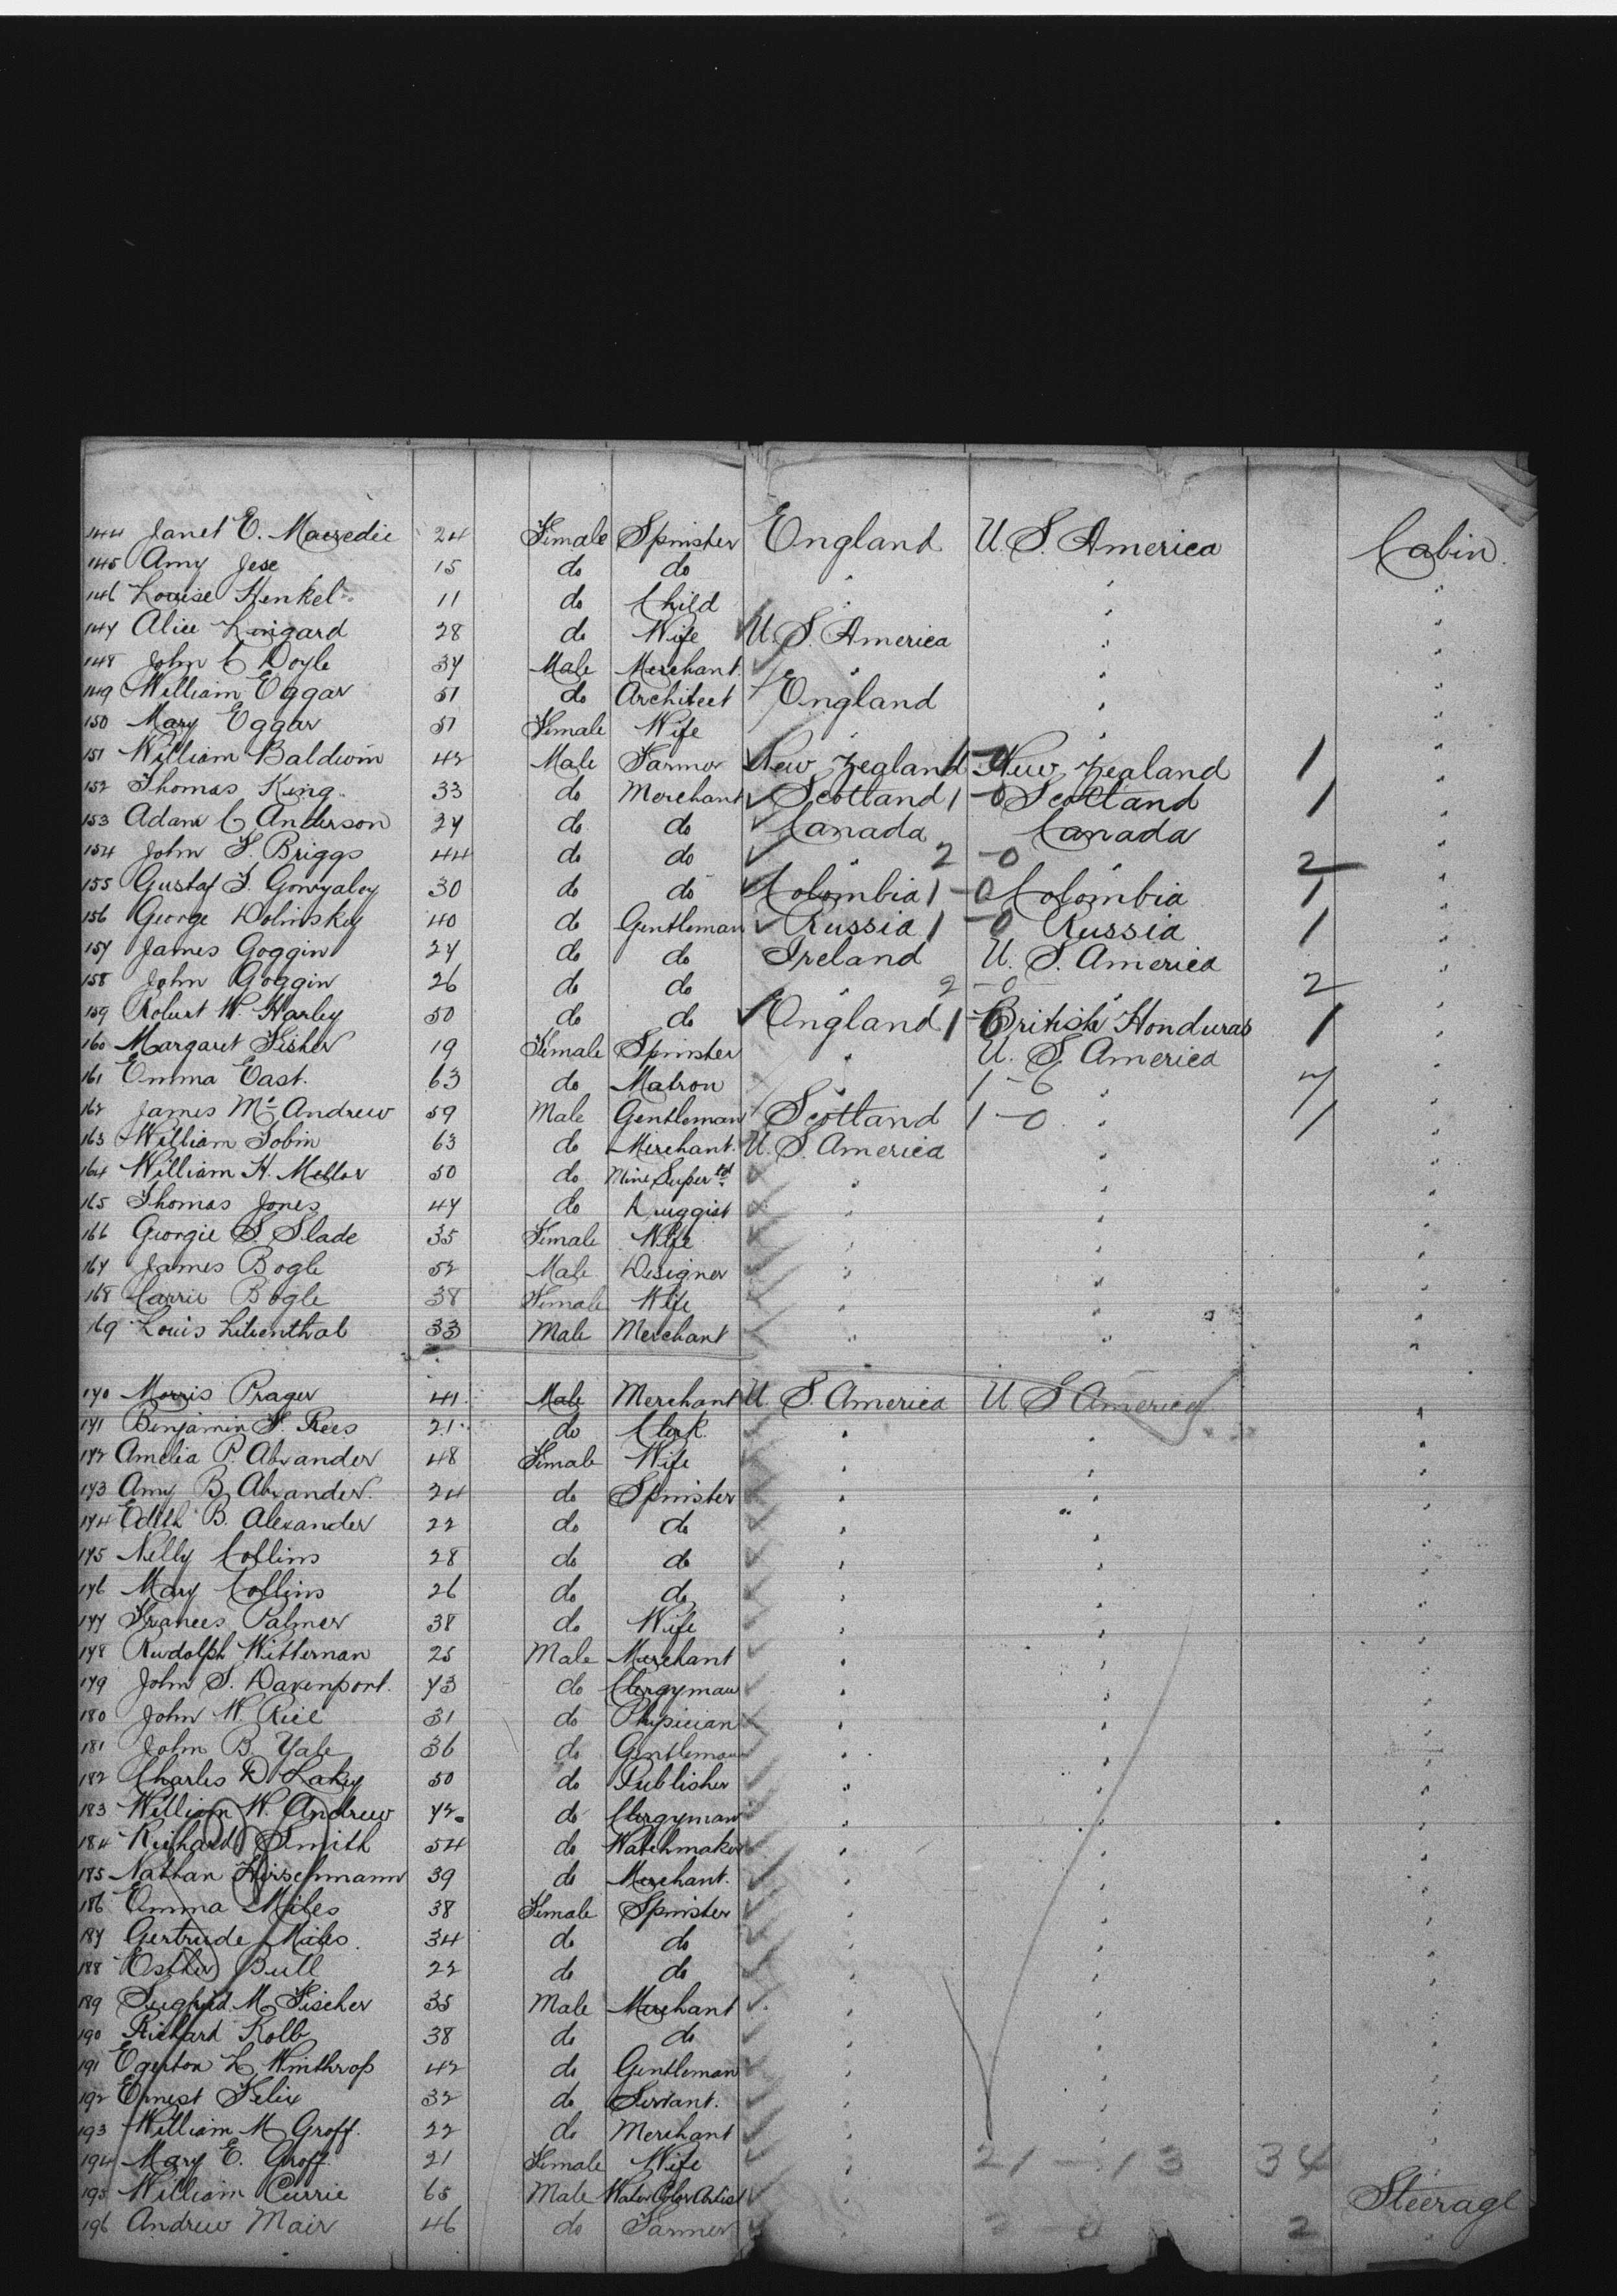 144 Janet E. Macredie 24 Female Spinster England U. S. America Cabin.
145 Amy Jese 15 do do " " "
146 Louise Henkel 11 do Child " " "
147 Alice Lingard 28 do Wife U. S. America " "
148 John C Doyle 37 Male Merchant. " " "
149 William Eggar 51 do Architect England " "
150 Mary Eggar 51 Female Wife " " "
151 William Baldwin 42 Male Farmer New Zealand 1 - 0 New Zealand 1 "
152 Thomas King 33 do Merchant Scotland 1 - 0 Scotland 1 "
153 Adam C Anderson 27 do do Canada Canada "
154 John F. Briggs 44 do do " 2 - 0 " 2 "
155 Gustaf S. Gonzaley 30 do do Colombia 1 - 0 Colombia 1 "
156 George Dolinsky 40 do Gentleman Russia 1 - 0 Russia 1 "
157 James Goggin 27 do do Ireland U. S. America "
158 John Goggin 26 do do " 2 - 0 " 2 "
159 Robert W. Harley 50 do do England 1 - 0 British Honduras 1 "
160 Margaret Fisher 19 Female Spinster " U. S. America "
161 Emma East. 63 do Matron " 1 - 6 " 7 "
162 James Mc Andrew 59 Male Gentleman Scotland 1 - 0 " 1 "
163 William Tobin 63 do Merchant. U. S. America " "
164 William H. Mellor 50 do Mine Supertd. " " "
165 Thomas Jones 47 do Druggist " " "
166 Georgie S. Slade 35 Female Wife " " "
167 James Bogle 52 Male Designer " " "
168 Carrie Bogle 38 Female Wife " " "
169 Louis Lilienthal 33 Male Merchant " " "
170 Morris Prager 41 Male Merchant U. S. America U S America
171 Benjamin F. Rees 21 do Clerk. " " "
172 Amelia P. Alexander 48 Female Wife " " "
173 Amy B Alexander. 24 do Spinster " " "
174 Edith B. Alexander 22 do do " " "
175 Nelly Collins 28 do do " " "
176 Mary Collins 26 do do " " "
177 Frances Palmer 38 do Wife " " "
178 Rudolph Witteman 25 Male Merchant " " "
179 John S. Davenport. 73 do Clergyman " " "
180 John W. Rice 31 do Physician " " "
181 John B. Yale 36 do Gentleman " " "
182 Charles D Lakey 50 do Publisher " " "
183 William W. Andrew 72 do Clergyman " " "
184 Richard Smith 54 do Watchmaker " " "
185 Nathan Hirschmann 39 do Merchant. " " "
186 Emma Miles 38 Female Spinster " " "
187 Gertrude Miles. 34 do do " " "
188 Esther Bull 22 do do " " "
189 Sigfrid M Fischer 35 Male Merchant " " "
190 Richard Kolb 38 do do " " "
191 Egerton L Winthrop 42 do Gentleman " " "
192 Ernest Felix 32 do Servant. " " "
193 William M Groff. 22 do Merchant " " "
194 Mary E. Groff. 21 Female Wife " 21 - 13 34
195 William Currie 65 Male Water Color Artist " Steerage
196 Andrew Mair 46 do Farmer " 2 - 0 2 "